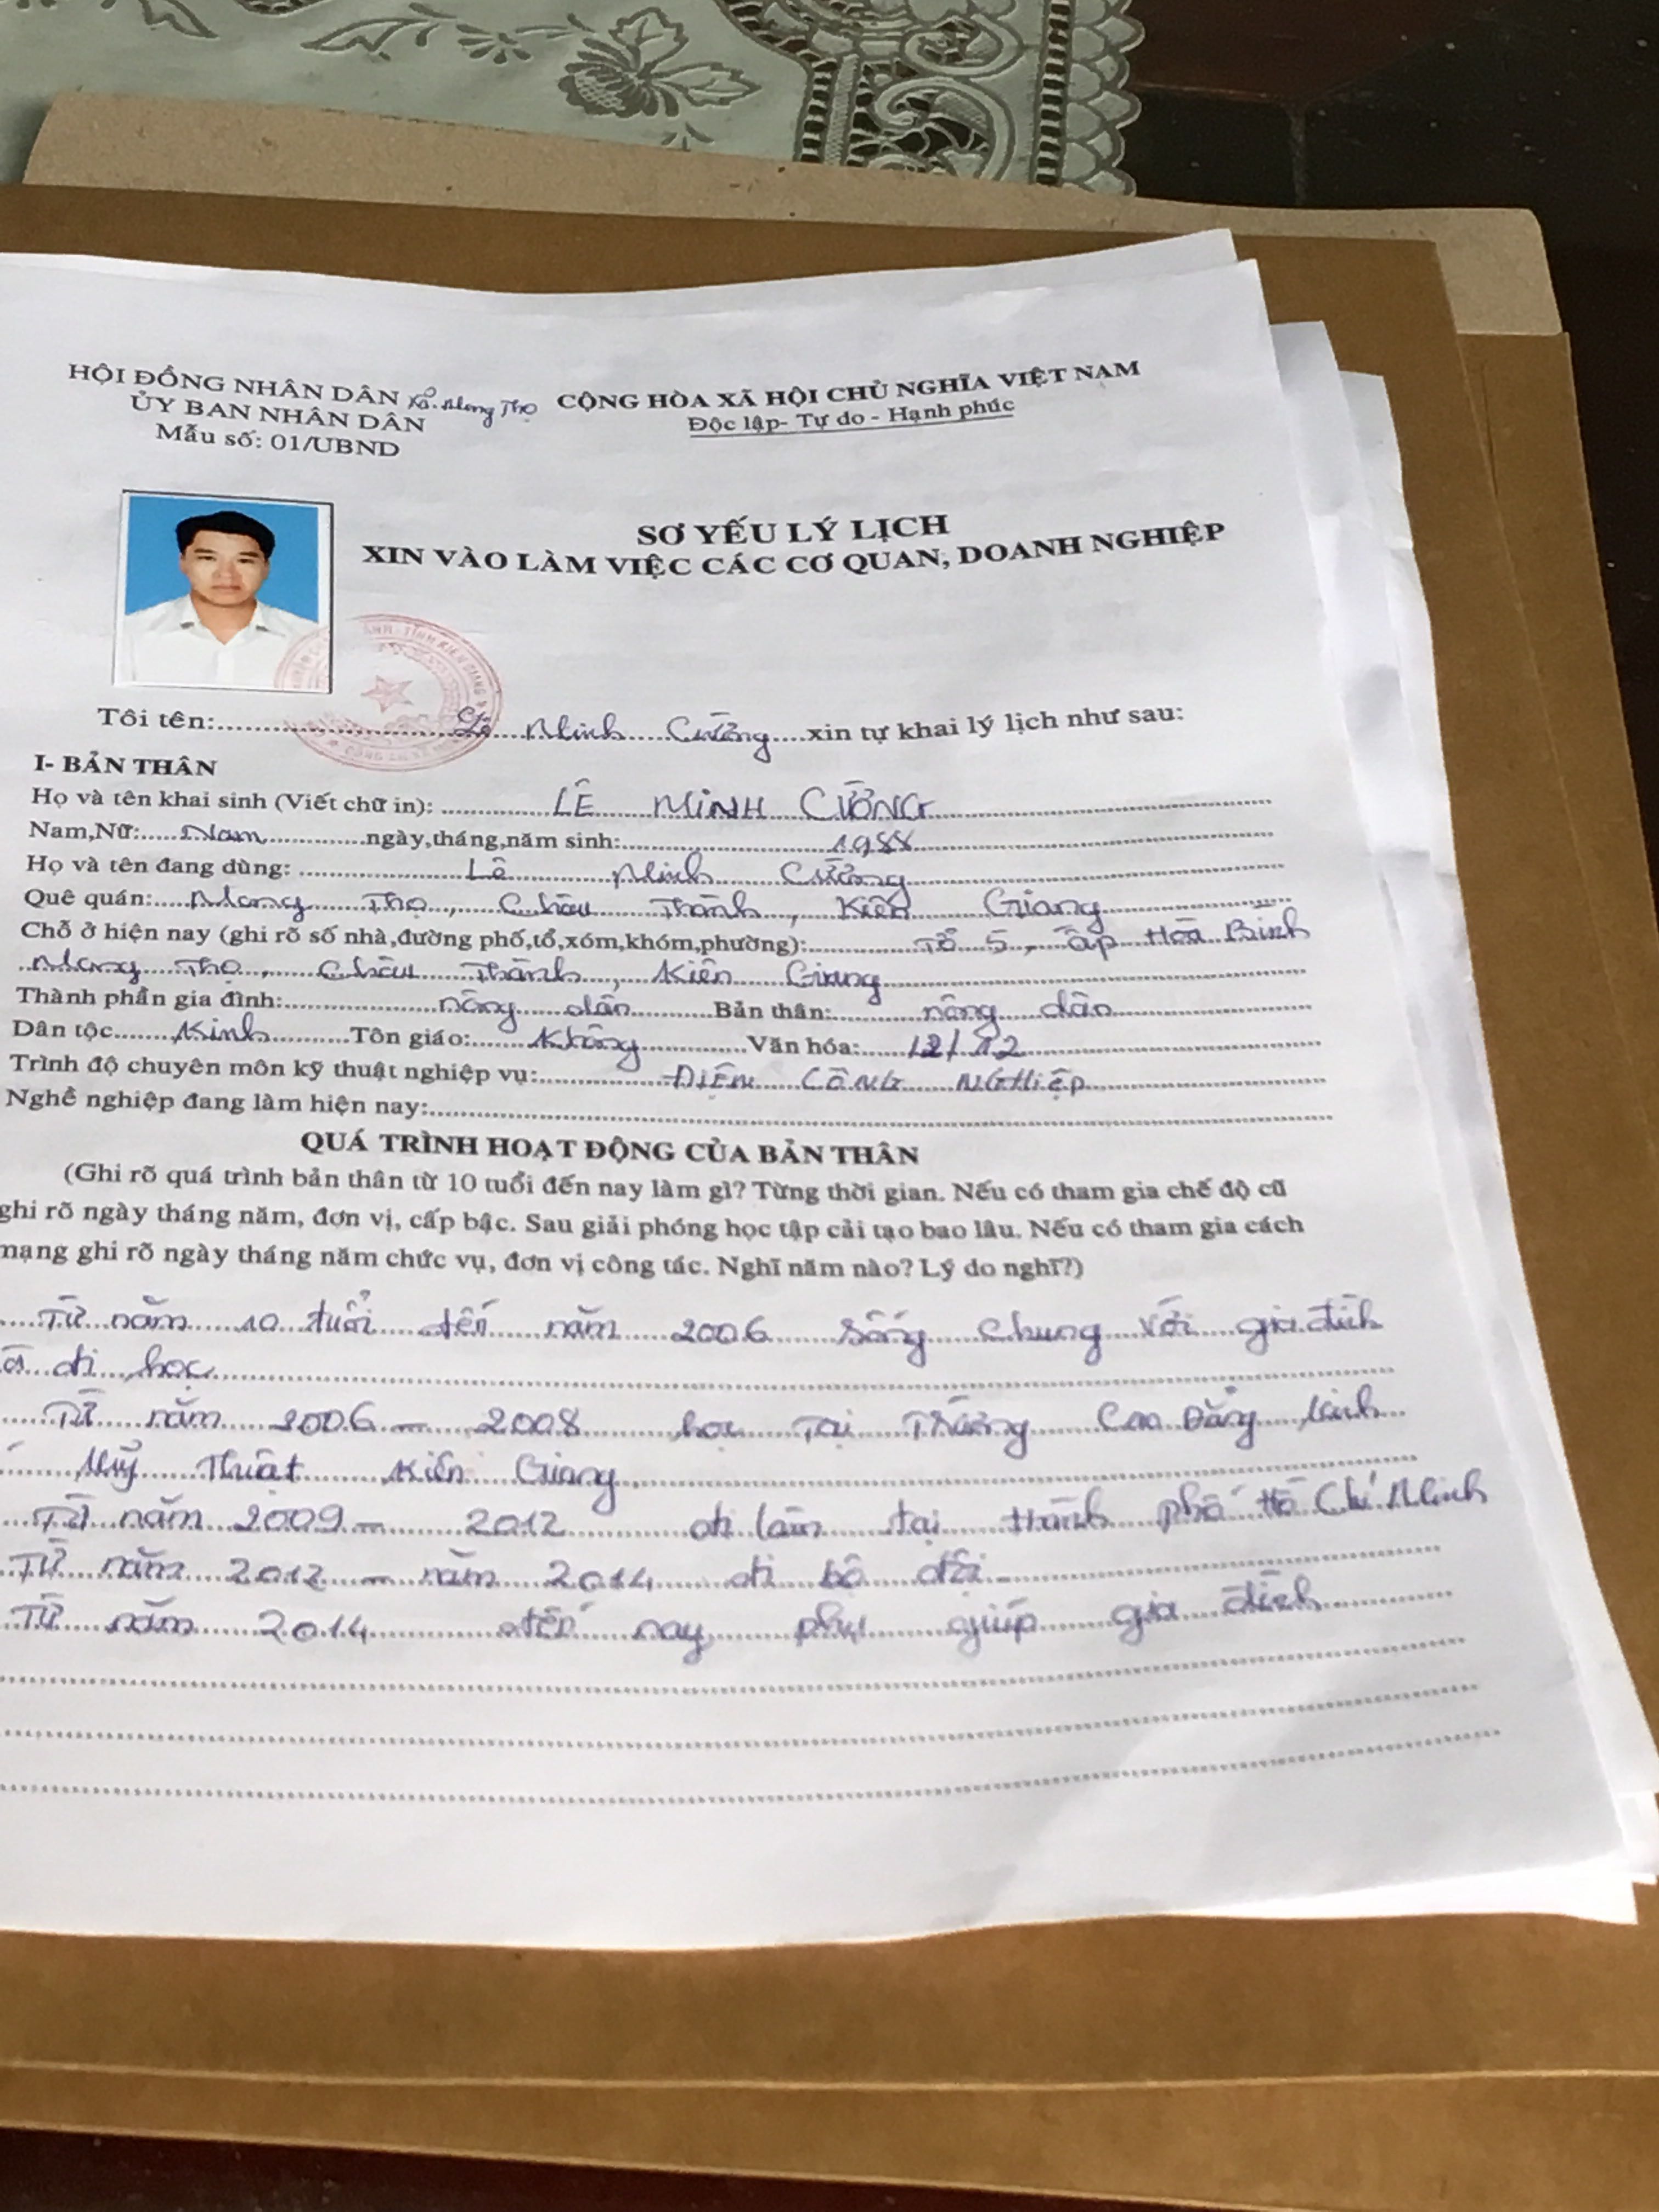 HỘI ĐỒNG NHÂN DÂN xã. Mong Thọ
ỦY BAN NHÂN DÂN
Mẫu số: 01/UBND
CỘNG HÒA XÃ HỘI CHỦ NGHĨA VIỆT NAM
Độc lập- Tự do - Hạnh phúc
SƠ YẾU LÝ LỊCH
XIN VÀO LÀM VIỆC CÁC CƠ QUAN, DOANH NGHIỆP
TỈNH KIÊN GIANG
Tôi tên: Lê Minh Cường xin tự khai lý lịch như sau:
I- BẢN THÂN
Họ và tên khai sinh (Viết chữ in): LÊ MINH CƯỜNG
Nam,Nữ: Nam ngày,tháng,năm sinh: 1988
Họ và tên đang dùng: Lê Minh Cường
Quê quán: Mong Thọ, Châu Thành, Kiên Giang
Chỗ ở hiện nay (ghi rõ số nhà,đường phố,tổ,xóm,khóm,phường): Tổ 5, ấp Hòa Bình
Mong Thọ, Châu Thành, Kiên Giang
Thành phần gia đình: nông dân Bản thân: nông dân
Dân tộc Kinh Tôn giáo: Không Văn hóa: 12/12
Trình độ chuyên môn kỹ thuật nghiệp vụ: ĐIỆN CÔNG NGHIỆP
Nghề nghiệp đang làm hiện nay:
QUÁ TRÌNH HOẠT ĐỘNG CỦA BẢN THÂN
(Ghi rõ quá trình bản thân từ 10 tuổi đến nay làm gì? Từng thời gian. Nếu có tham gia chế độ cũ
ghi rõ ngày tháng năm, đơn vị, cấp bậc. Sau giải phóng học tập cải tạo bao lâu. Nếu có tham gia cách
mạng ghi rõ ngày tháng năm chức vụ, đơn vị công tác. Nghĩ năm nào? Lý do nghĩ?)
Từ năm 10 tuổi đến năm 2006 sống chung với gia đình
đi học
Từ năm 2006 - 2008 học Tại Trường Cao Đẳng kinh
Thuật Kiên Giang
Từ năm 2009 - 2012 đi làm tại thành phố Hồ Chí Minh
Từ năm 2012 - năm 2014 đi bộ đội
Từ năm 2014 đến nay phụ giúp gia đình